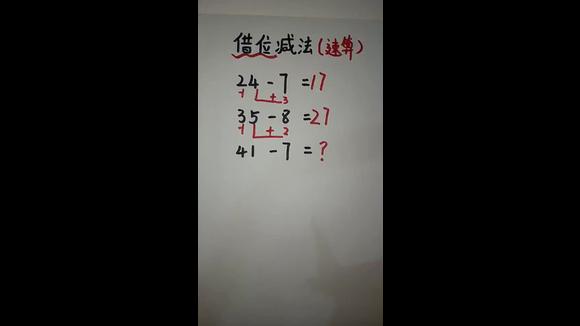 借位减法(速算)
24-7=17
-1 +3
35-8=27
-1 +2
41-7=?